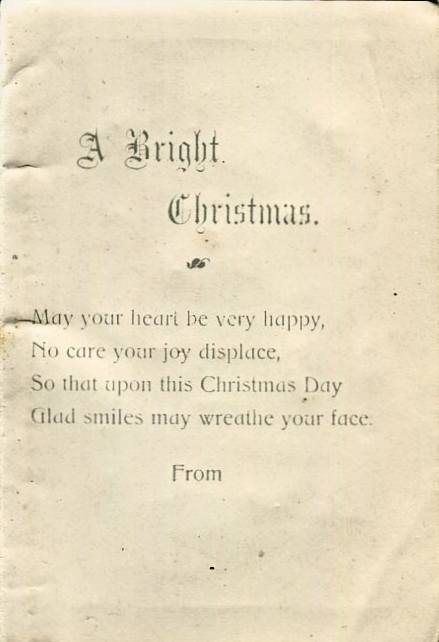 A Bright
Christmas.
May your heart be very happy,
No care your joy displace,
So that upon this Christmas Day
Glad smiles may wreathe your face.
From